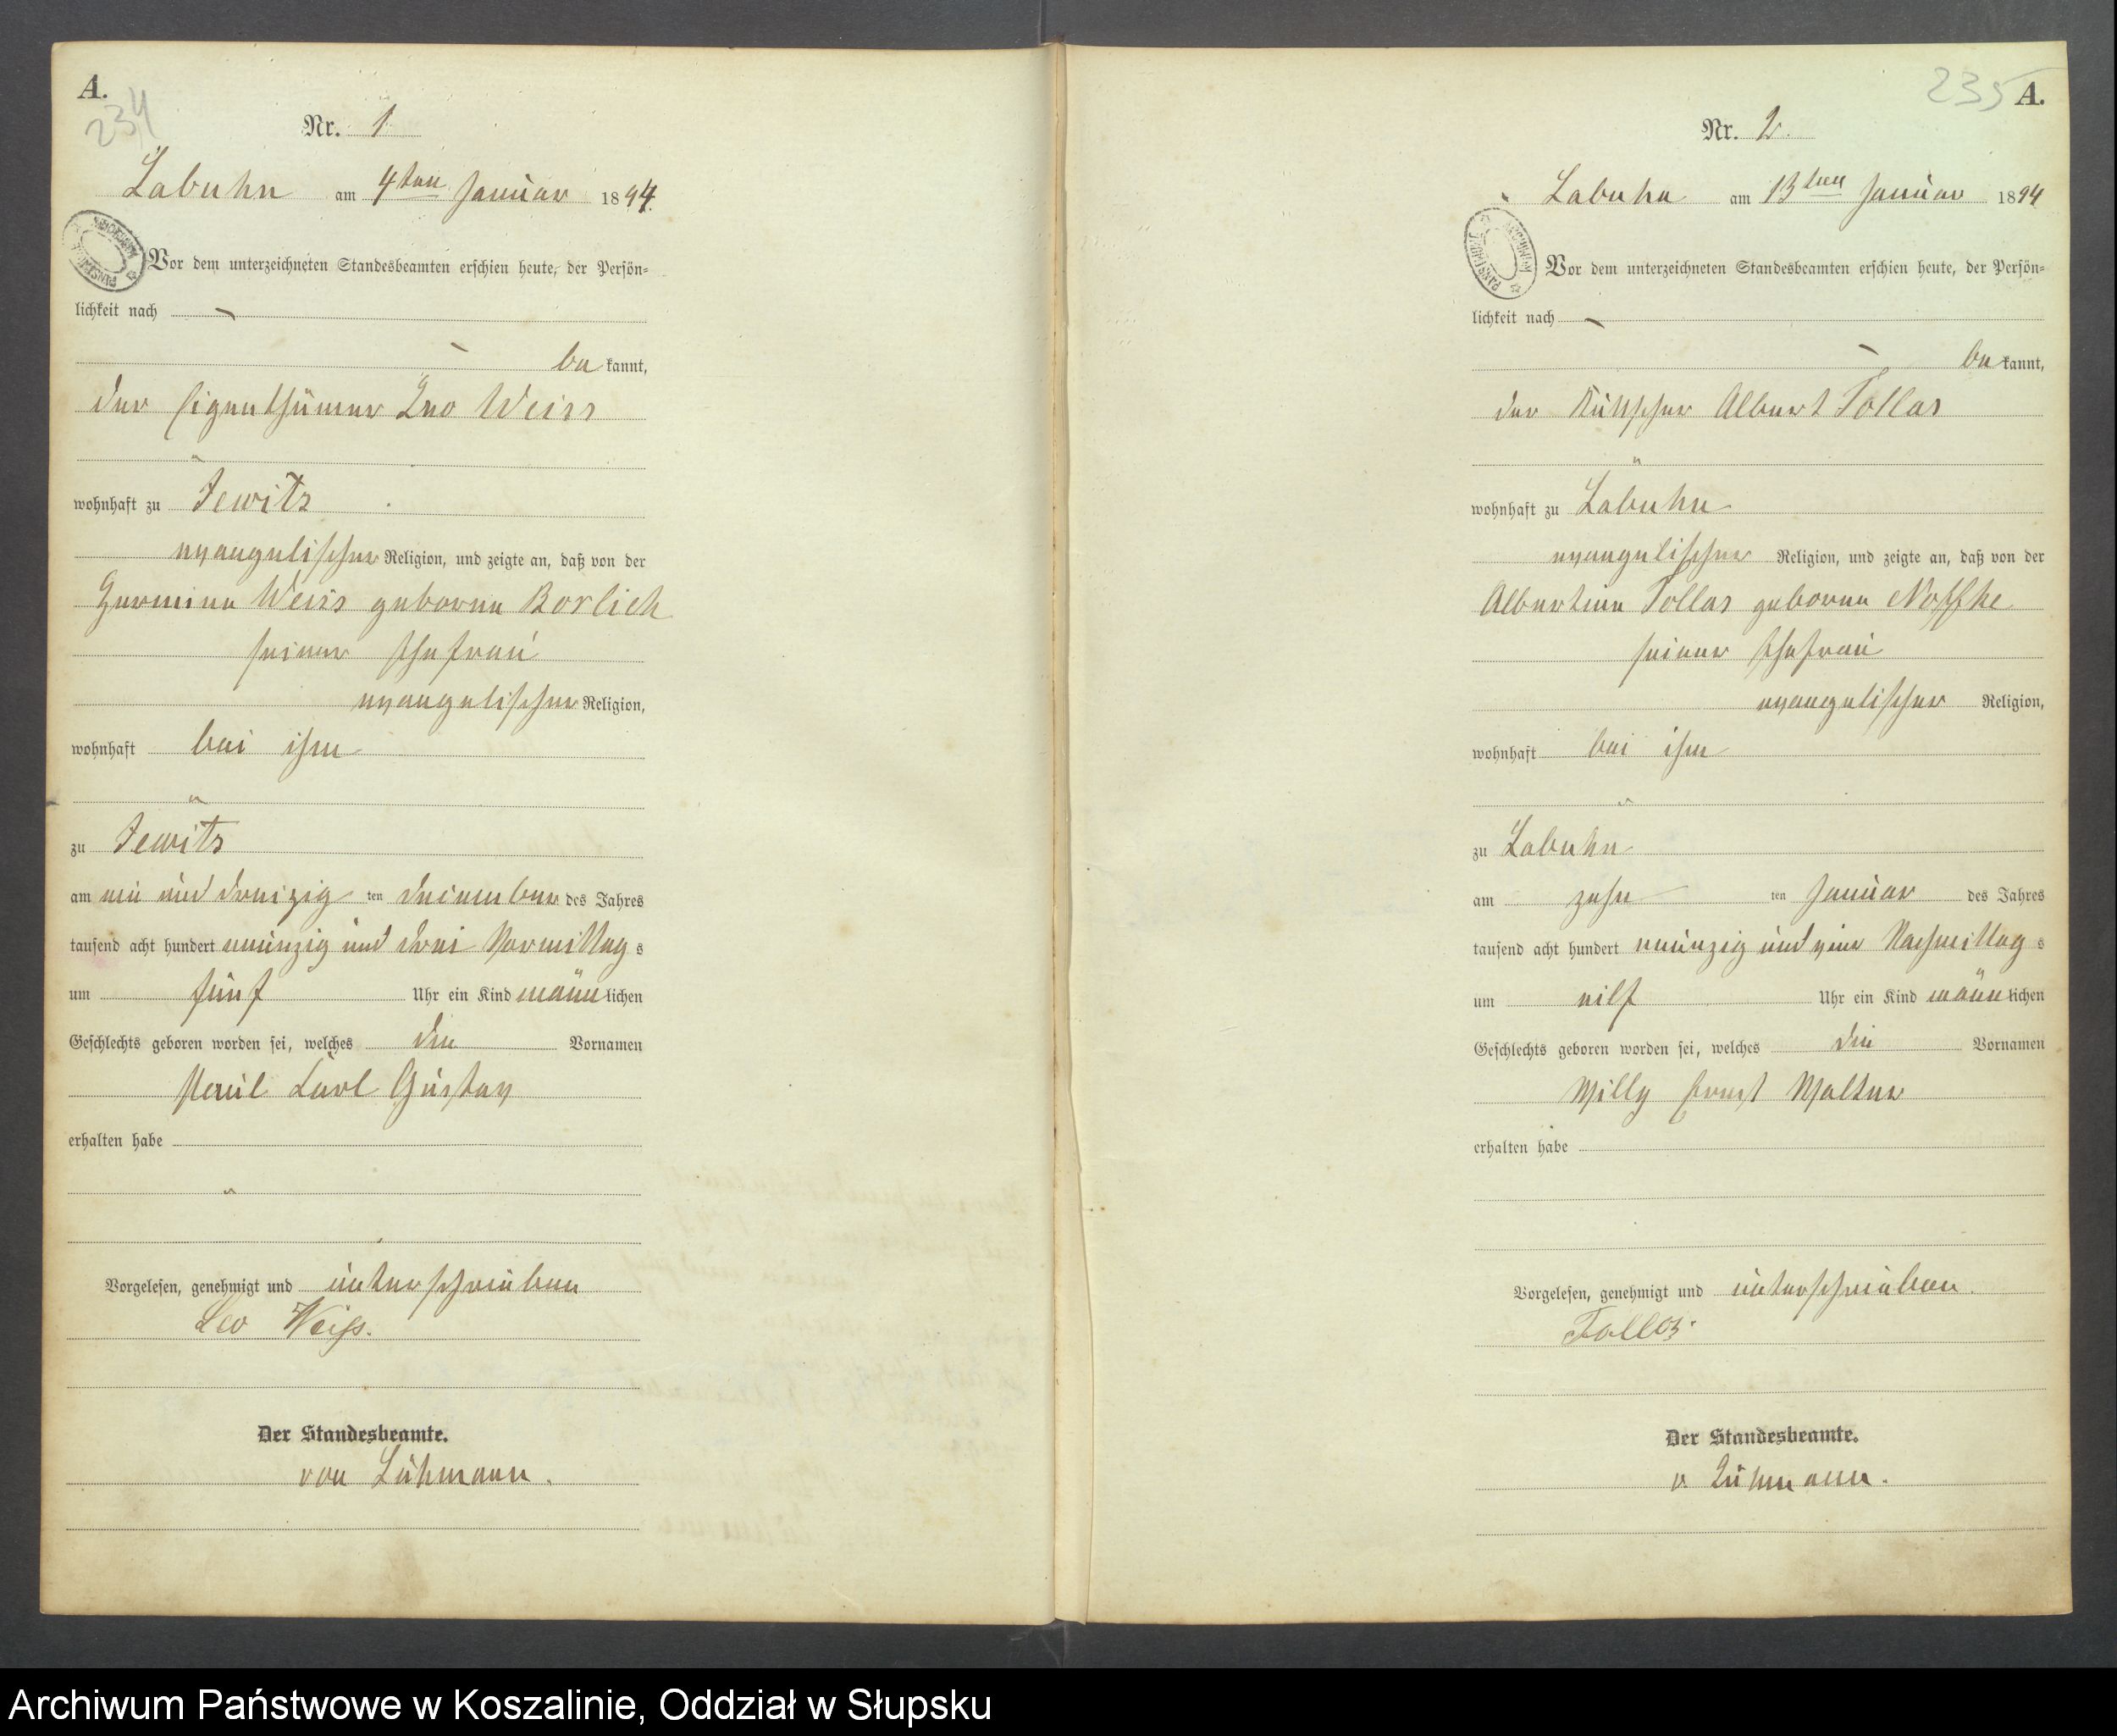 A.
234
Nr. 1
Labuhn am 4ten Januar 1894.
Vor dem unterzeichneten Standesbeamten erschien heute, der Persön=
lichkeit nach
be kannt,
der Eigenthümer Leo Weiss
wohnhaft zu Jewitz
evangelischer Religion, und zeigte an, daß von der
Hermine Weiss geborne Borlich
seiner Ehefrau
evangelischer Religion,
wohnhaft bei ihm
zu Jewitz
am ein und dreizig ten Dezember des Jahres
tausend acht hundert neunzig und drei Vormittag s
um fünf Uhr ein Kind männ lichen
Geschlechts geboren worden sei, welches die Vornamen
Paul Carl Gustav
erhalten habe
Vorgelesen, genehmigt und unterschrieben
Leo Weiss.
Der Standesbeamte.
von Lühmann.
235 A.
Nr. 2.
Labuhn am 13ten Januar 1894
Vor dem unterzeichneten Standesbeamten erschien heute, der Persön=
lichkeit nach
be kannt,
der Kutscher Albert Tollas
wohnhaft zu Labuhn
evangelischer Religion, und zeigte an, daß von der
Albertine Tollas geborne Noffke
seiner Ehefrau
evangelischer Religion,
wohnhaft bei ihm
zu Labuhn
am zehn ten Januar des Jahres
tausend acht hundert neunzig und vier Nachmittag s
um eilf Uhr ein Kind männ lichen
Geschlechts geboren worden sei, welches die Vornamen
Willy Ernst Walter
erhalten habe
Vorgelesen, genehmigt und unterschrieben.
Tollas.
Der Standesbeamte.
v. Lühmann.
Archiwum Państwowe w Koszalinie, Oddział w Słupsku